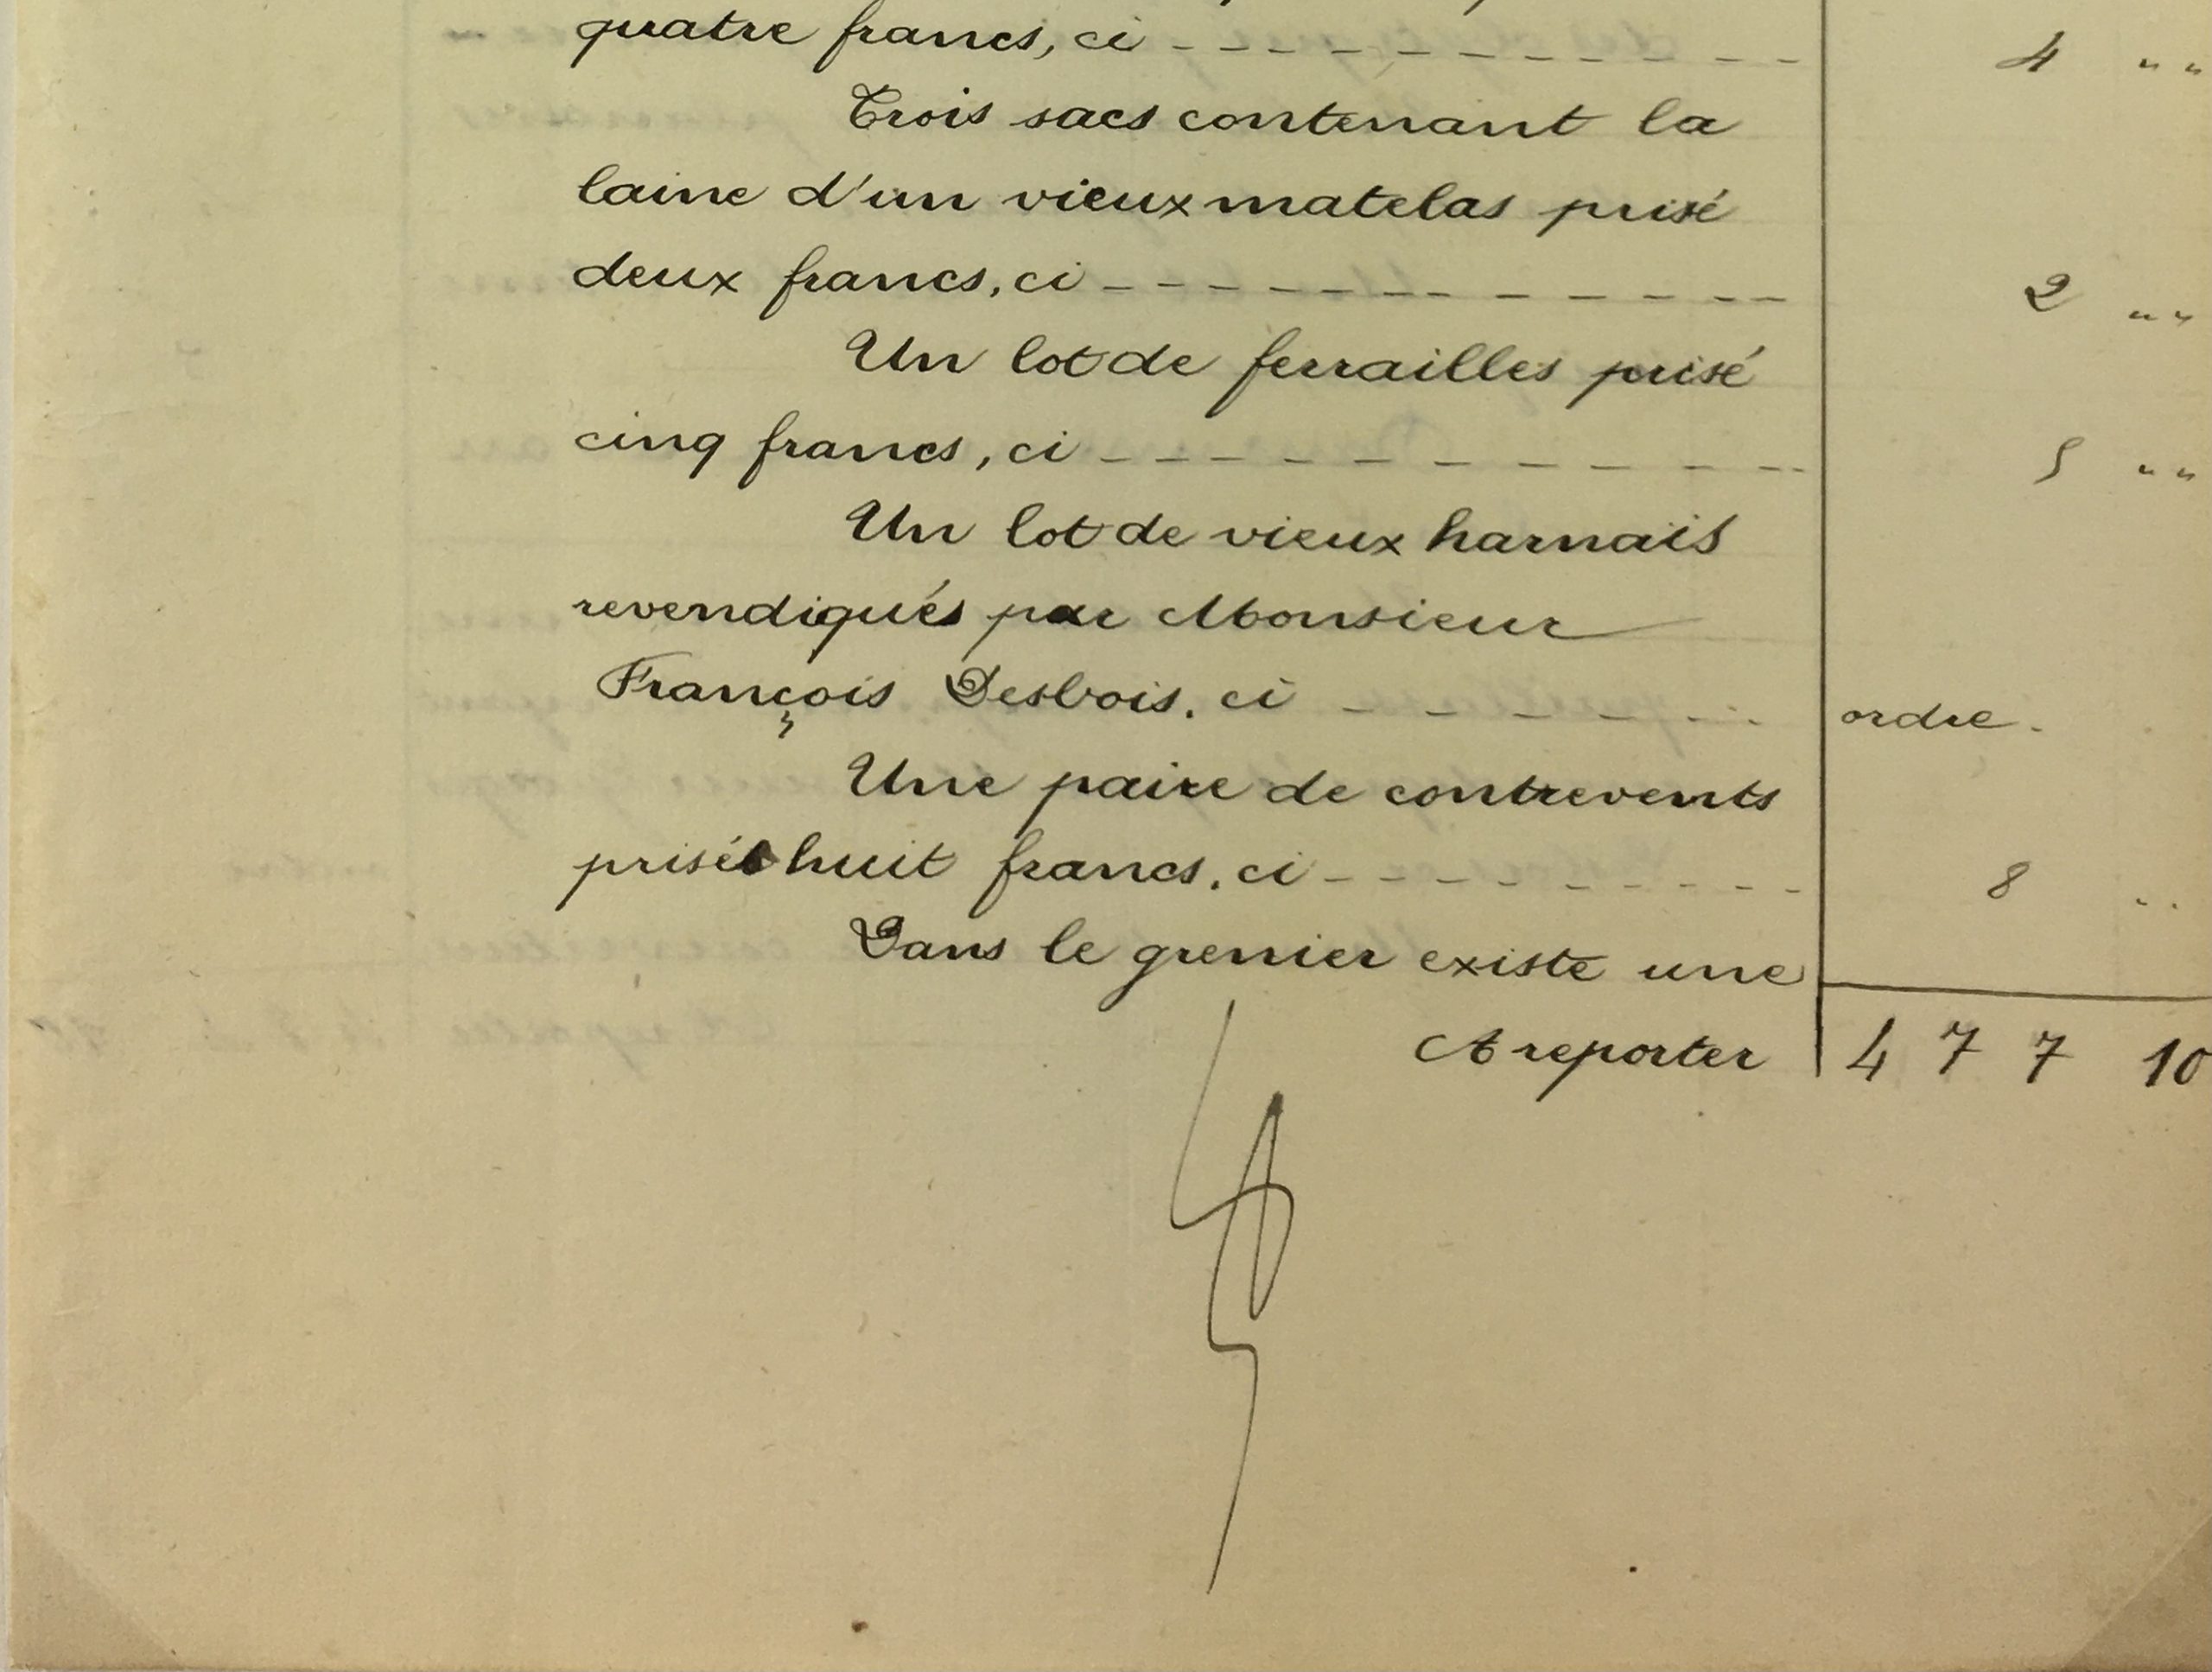 quatre francs, ci - - - - - - - - - - - 4 " "
Trois sacs contenant la
laine d'un vieux matelas prisé
deux francs, ci - - - - - - - - - - - 2 " "
Un lot de ferrailles prisé
cinq francs, ci - - - - - - - - - - 5 " "
Un lot de vieux harnais
revendiqués par Monsieur
François Desbois. ci - - - - - - ordre.
Une paire de contrevents
prisés huit francs. ci - - - - - - - - - 8 " "
Dans le grenier existe une
A reporter 477 10